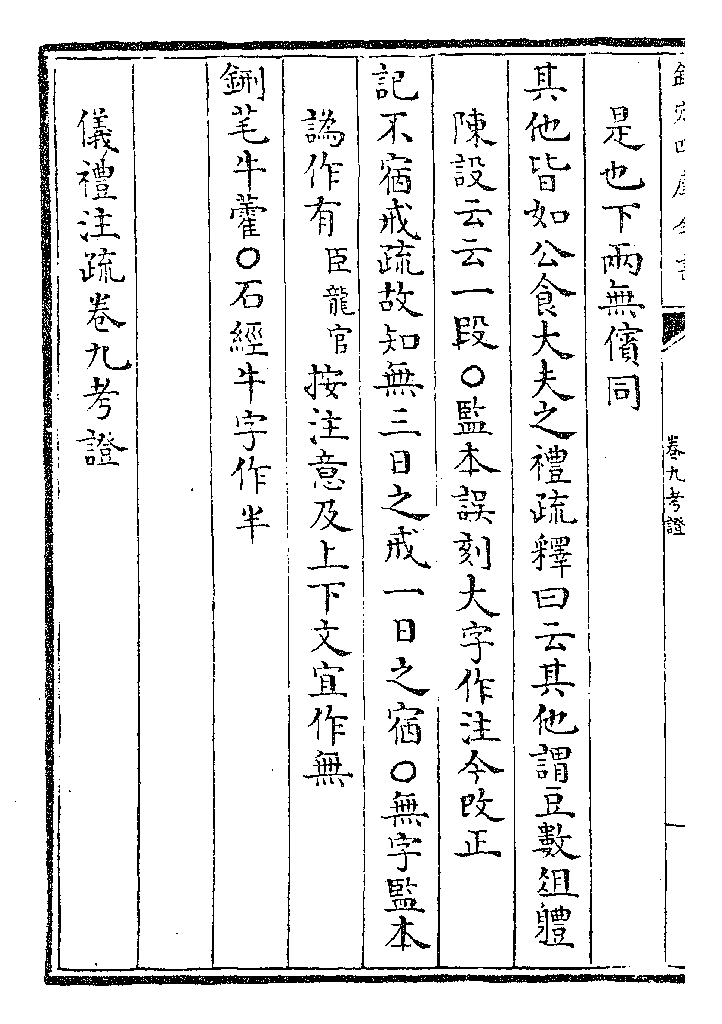 欽定四庫全書
卷九考證
是也下兩無儐同
其他皆如公食大夫之禮疏釋曰云其他謂豆數俎體
陳設云云一段○監本誤刻大字作注今改正
記不宿戒疏故知無三日之戒一日之宿○無字監本
譌作有臣龍官按注意及上下文宜作無
鉶芼牛藿○石經牛字作半
儀禮注疏卷九考證